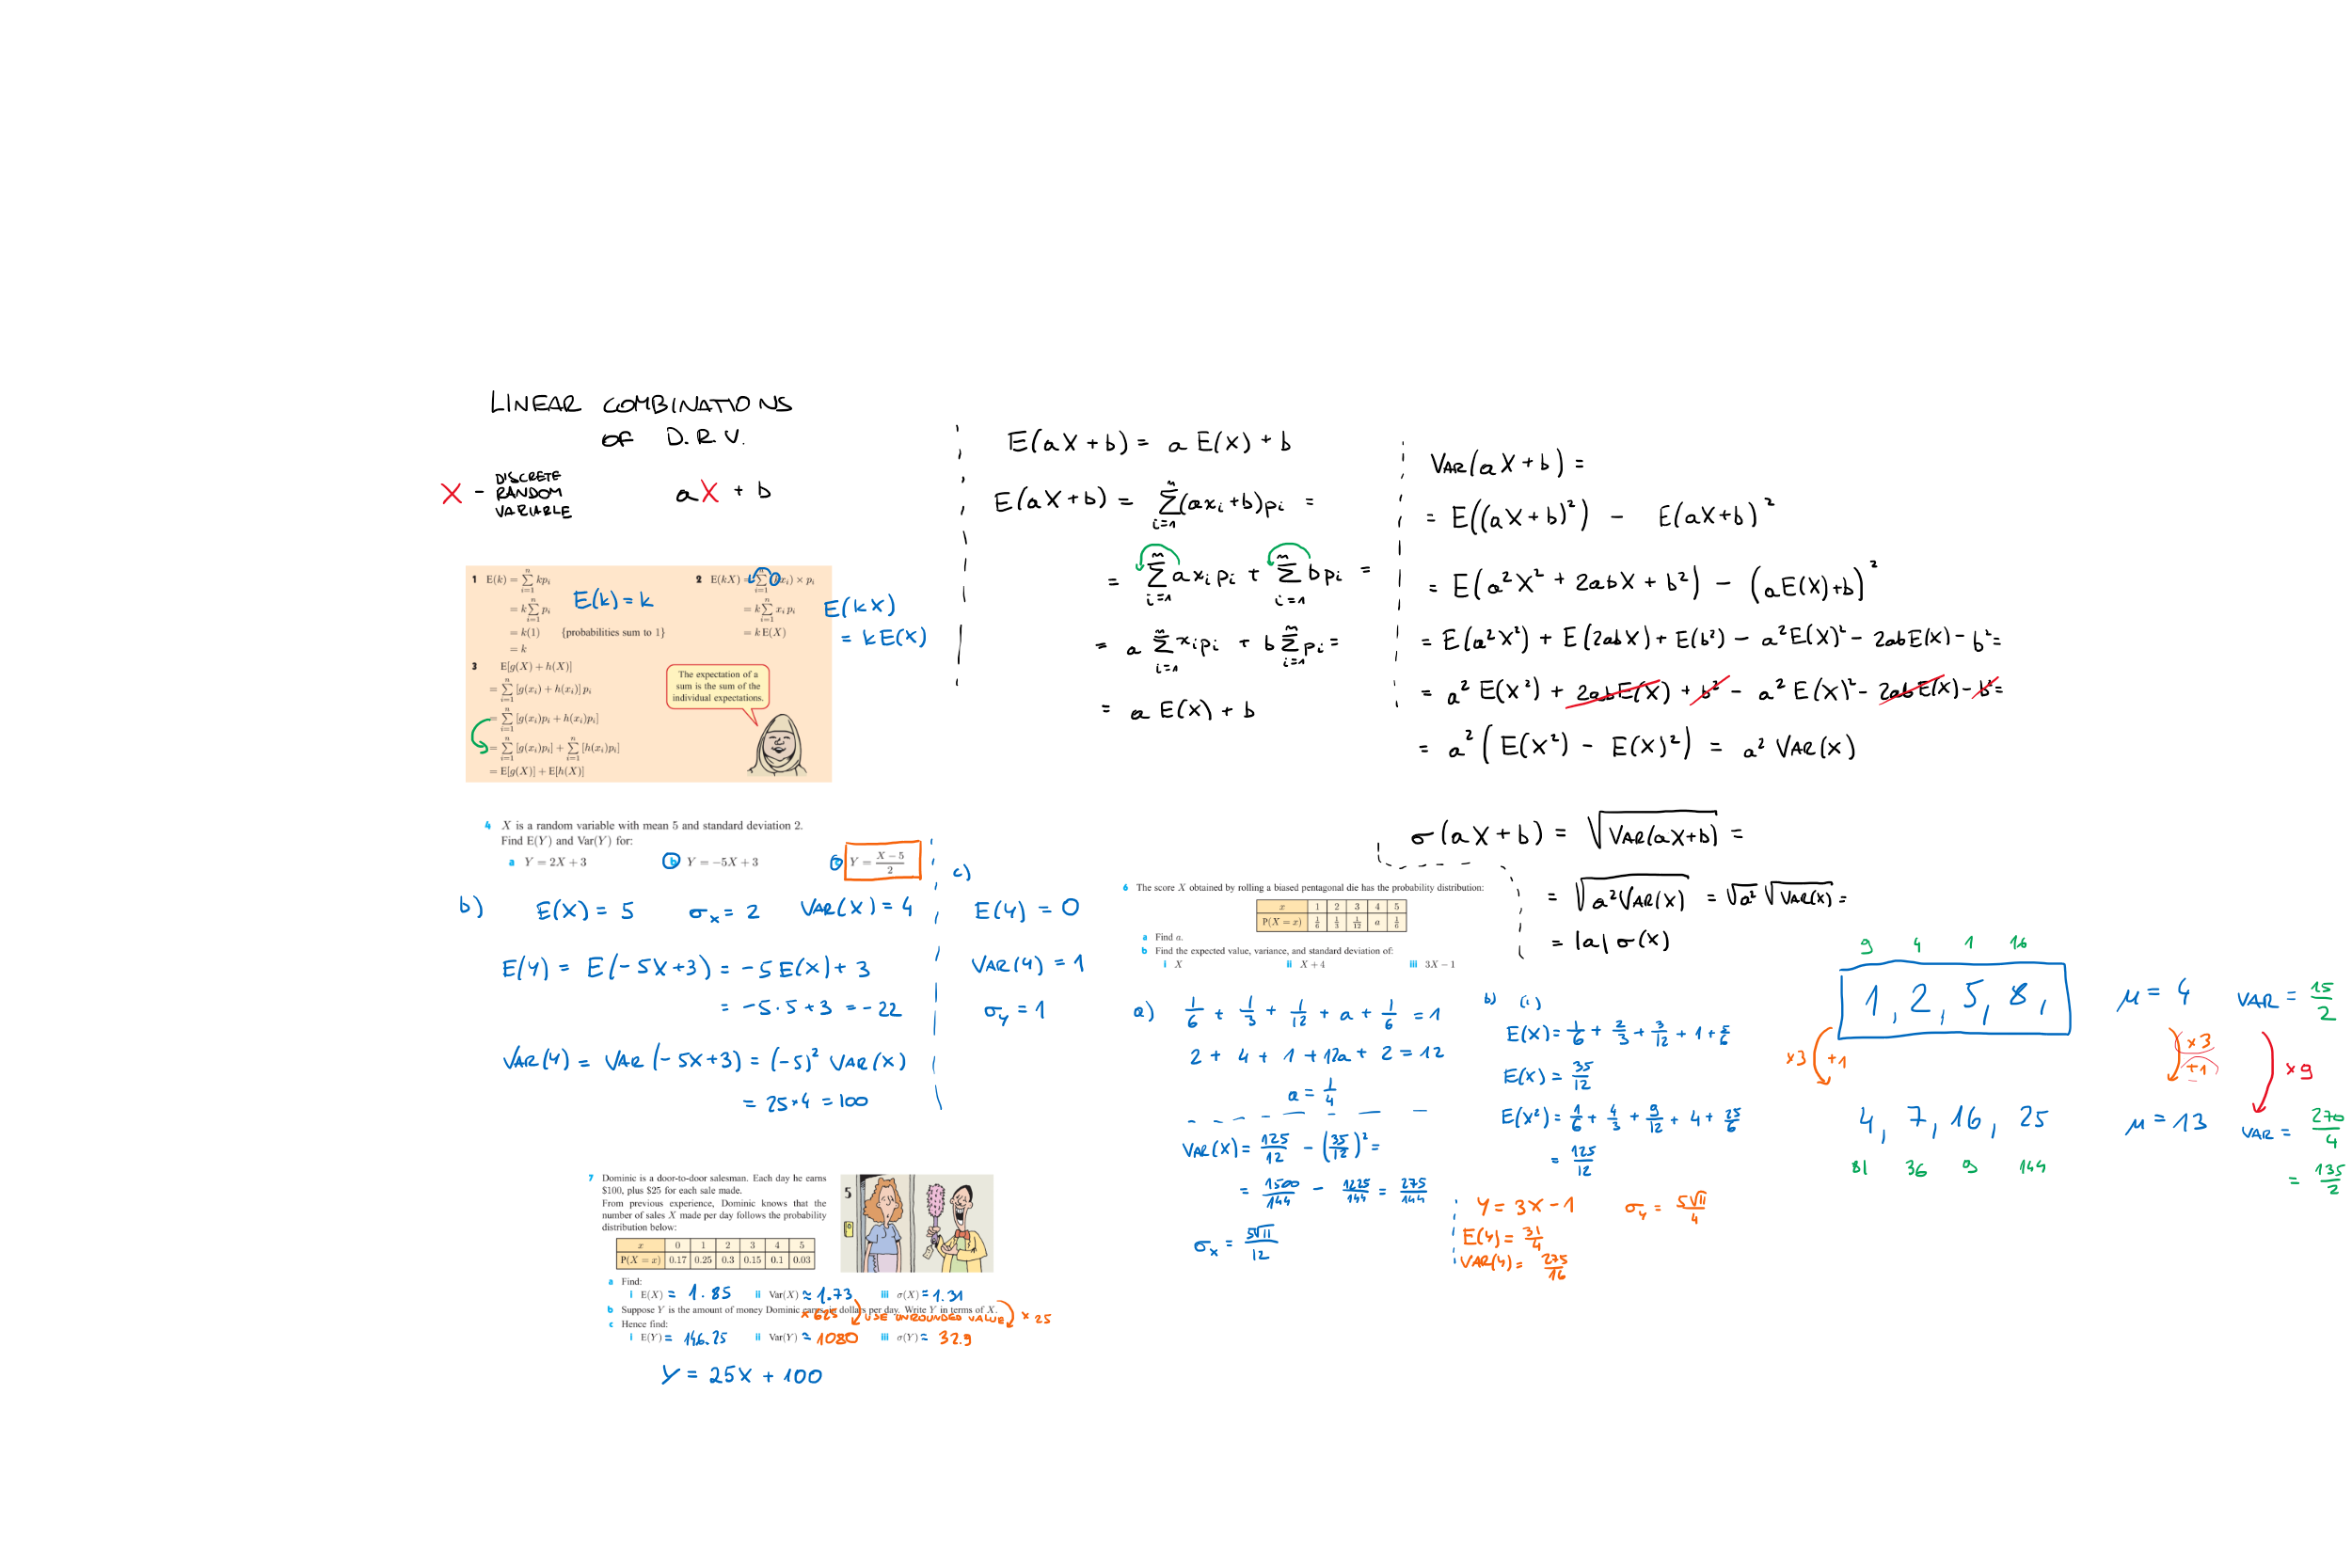 LINEAR COMBINATIONS
OF D.R.V.
X - DISCRETE RANDOM VARIABLE
aX + b
1 E(k) = Σ_{i=1}^{n} kp_i
= k Σ_{i=1}^{n} p_i
= k(1) {probabilities sum to 1}
= k
E(k) = k
2 E(kX) = Σ_{i=1}^{n} (kx_i) × p_i
= k Σ_{i=1}^{n} x_i p_i
= k E(X)
E(kX)
= k E(X)
3 E[g(X) + h(X)]
= Σ_{i=1}^{n} [g(x_i) + h(x_i)] p_i
= Σ_{i=1}^{n} [g(x_i)p_i + h(x_i)p_i]
= Σ_{i=1}^{n} [g(x_i)p_i] + Σ_{i=1}^{n} [h(x_i)p_i]
= E[g(X)] + E[h(X)]
The expectation of a
sum is the sum of the
individual expectations.
E(aX + b) = a E(X) + b
E(aX + b) = Σ_{i=1}^{n} (ax_i + b)p_i =
= Σ_{i=1}^{n} a x_i p_i + Σ_{i=1}^{n} b p_i =
= a Σ_{i=1}^{n} x_i p_i + b Σ_{i=1}^{n} p_i =
= a E(X) + b
VAR(aX + b) =
= E((aX + b)²) - E(aX+b)²
= E(a²X² + 2abX + b²) - (aE(X)+b)²
= E(a²X²) + E(2abX) + E(b²) - a²E(X)² - 2abE(X) - b² =
= a² E(X²) + 2abE(X) + b² - a² E(X)² - 2abE(X) - b² =
= a² (E(X²) - E(X)²) = a² VAR(X)
σ(aX + b) = √VAR(aX+b) =
= √a²VAR(X) = √a² √VAR(X) =
= |a| σ(X)
4 X is a random variable with mean 5 and standard deviation 2.
Find E(Y) and Var(Y) for:
a Y = 2X + 3 b Y = −5X + 3 c Y = (X − 5)/2
b) E(X) = 5 σ_X = 2 VAR(X) = 4
E(Y) = E(-5X+3) = -5 E(X) + 3
= -5·5 + 3 = -22
VAR(Y) = VAR(-5X+3) = (-5)² VAR(X)
= 25·4 = 100
c)
E(Y) = 0
VAR(Y) = 1
σ_Y = 1
6 The score X obtained by rolling a biased pentagonal die has the probability distribution:
x 1 2 3 4 5
P(X = x) 1/6 1/3 1/12 a 1/6
a Find a.
b Find the expected value, variance, and standard deviation of:
i X ii X + 4 iii 3X − 1
a) 1/6 + 1/3 + 1/12 + a + 1/6 = 1
2 + 4 + 1 + 12a + 2 = 12
a = 1/4
b) (i)
E(X) = 1/6 + 2/3 + 3/12 + 1 + 5/6
E(X) = 35/12
E(X²) = 1/6 + 4/3 + 9/12 + 4 + 25/6
= 125/12
VAR(X) = 125/12 - (35/12)² =
= 1500/144 - 1225/144 = 275/144
σ_X = 5√11/12
Y = 3X - 1 σ_Y = 5√11/4
E(Y) = 31/4
VAR(Y) = 275/16
9 4 1 16
1, 2, 5, 8, μ = 4 VAR = 15/2
×3 +1 ×3 +1 ×9
4, 7, 16, 25 μ = 13 VAR = 270/4
81 36 9 144
= 135/2
7 Dominic is a door-to-door salesman. Each day he earns
$100, plus $25 for each sale made.
From previous experience, Dominic knows that the
number of sales X made per day follows the probability
distribution below:
x 0 1 2 3 4 5
P(X = x) 0.17 0.25 0.3 0.15 0.1 0.03
5
a Find:
i E(X) = 1.85 ii Var(X) ≈ 1.73 iii σ(X) = 1.31
b Suppose Y is the amount of money Dominic earns in dollars per day. Write Y in terms of X.
×625 USE UNROUNDED VALUE ×25
c Hence find:
i E(Y) = 146.25 ii Var(Y) ≈ 1080 iii σ(Y) ≈ 32.9
Y = 25X + 100